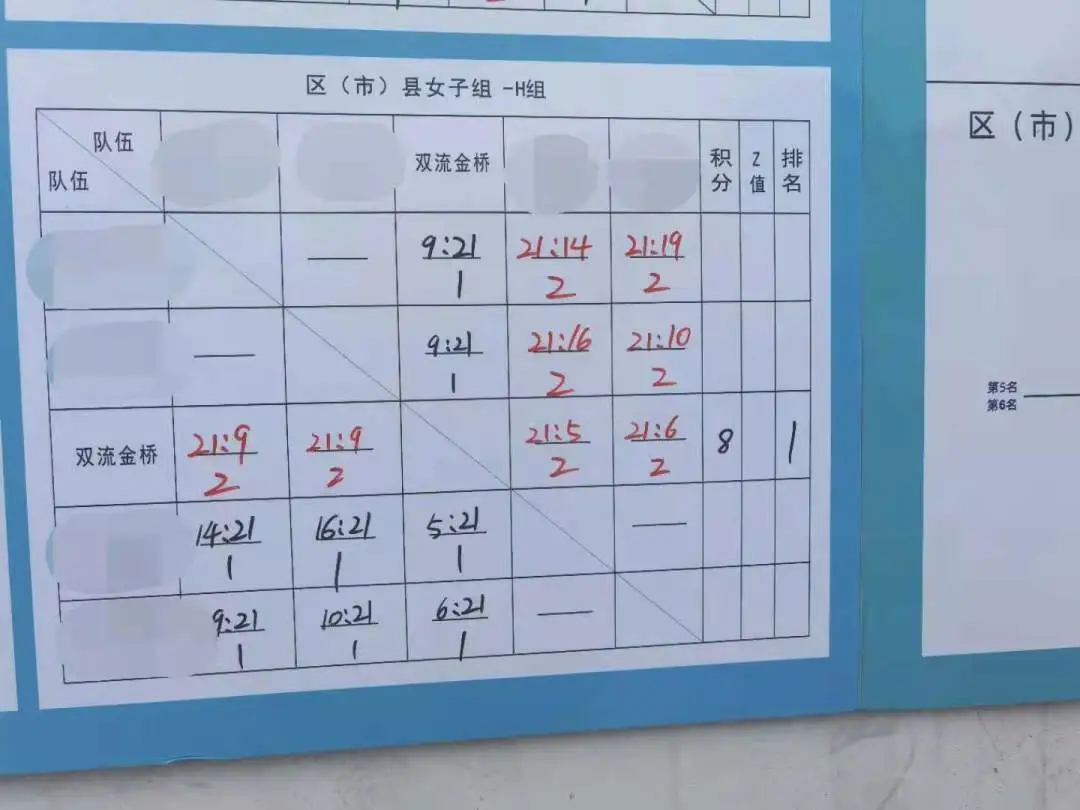 区（市）县女子组 -H组
队伍
队伍
双流金桥
积分
Z值
排名
—
9:21
1
21:14
2
21:19
2
—
9:21
1
21:16
2
21:10
2
双流金桥
21:9
2
21:9
2
21:5
2
21:6
2
8
1
14:21
1
16:21
1
5:21
1
—
9:21
1
10:21
1
6:21
1
—
区（市）
第5名
第6名